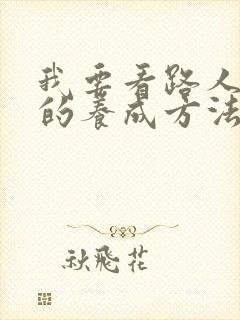 我要看路人
的养成方法
秋飛花